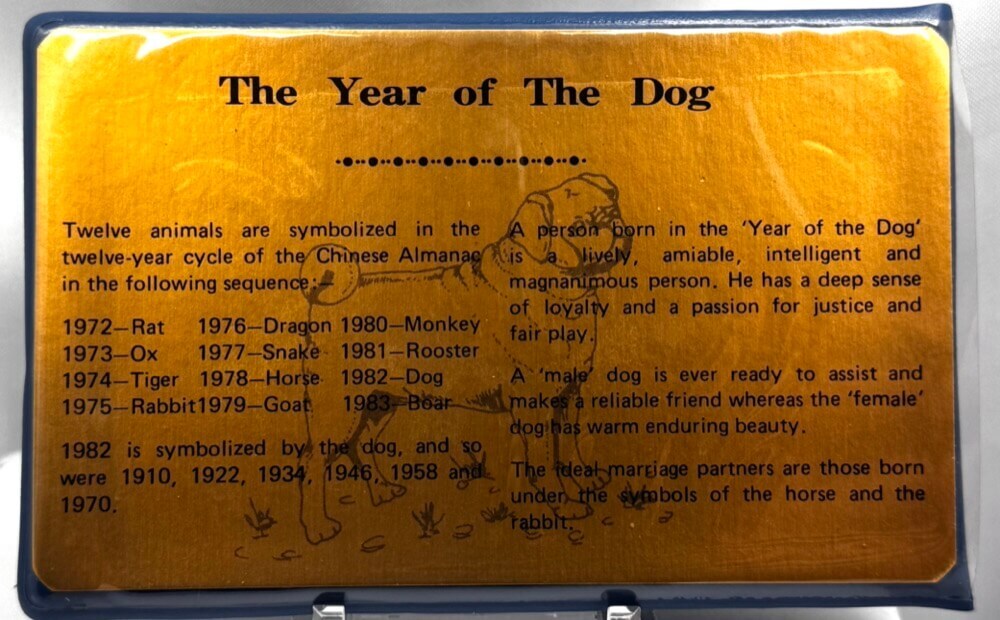 The Year of The Dog
Twelve animals are symbolized in the
twelve-year cycle of the Chinese Almanac
in the following sequence:—
1972—Rat 1976—Dragon 1980—Monkey
1973—Ox 1977—Snake 1981—Rooster
1974—Tiger 1978—Horse 1982—Dog
1975—Rabbit 1979—Goat 1983—Boar
1982 is symbolized by the dog, and so
were 1910, 1922, 1934, 1946, 1958 and
1970.
A person born in the 'Year of the Dog'
is a lively, amiable, intelligent and
magnanimous person. He has a deep sense
of loyalty and a passion for justice and
fair play.
A 'male' dog is ever ready to assist and
makes a reliable friend whereas the 'female'
dog has warm enduring beauty.
The ideal marriage partners are those born
under the symbols of the horse and the
rabbit.